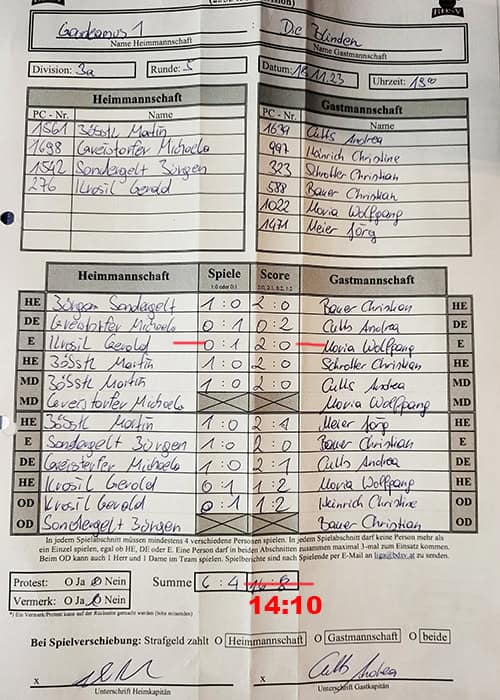 BDSV
Gaudeamus 1
Die Blinden
Name Heimmannschaft
Name Gastmannschaft
Division: 3a Runde: 5 Datum: 18.11.23 Uhrzeit: 1900
Heimmannschaft Gastmannschaft
PC - Nr. Name PC - Nr. Name
1561 Bösstl Martin 1639 Cults Andrea
1698 Gareistorfer Michaela 997 Heinrich Christine
1542 Sondergelt Jürgen 323 Schroller Christian
276 Krosil Gerold 588 Bauer Christian
1022 Moria Wolfgang
1471 Meier Jörg
Heimmannschaft Spiele Score Gastmannschaft
1:0 oder 0:1 2:0, 2:1, 0:2, 1:2
HE Jürgen Sondergelt 1:0 2:0 Bauer Christian HE
DE Gareistorfer Michaela 0:1 0:2 Cults Andrea DE
E Krosil Gerold 0:1 2:0 Moria Wolfgang E
HE Bösstl Martin 1:0 2:0 Schroller Christian HE
MD Bösstl Martin 1:0 2:0 Cults Andrea MD
MD Gareistorfer Michaela Moria Wolfgang MD
HE Bösstl Martin 1:0 2:1 Meier Jörg HE
E Sondergelt Jürgen 1:0 2:0 Bauer Christian E
DE Gareistorfer Michaela 1:0 2:1 Cults Andrea DE
HE Krosil Gerold 0:1 1:2 Moria Wolfgang HE
OD Krosil Gerold 0:1 1:2 Heinrich Christine OD
OD Sondergelt Jürgen Bauer Christian OD
In jedem Spielabschnitt müssen mindestens 4 verschiedene Personen spielen. In jedem Spielabschnitt darf keine Person mehr als
ein Einzel spielen, egal ob HE, DE oder E. Eine Person darf in beiden Abschnitten zusammen maximal 3-mal zum Einsatz kommen.
Beim OD kann auch 1 Herr und 1 Dame im Team spielen. Spielberichte sind nach Spielende per E-Mail an liga@bdsv.at zu senden.
Protest: O Ja O Nein Summe 6:4 16:8
Vermerk: O Ja O Nein 14:10
*) Ein Vermerk/Protest kann auf der Rückseite gemacht werden (bitte ankreuzen)
Bei Spielverschiebung: Strafgeld zahlt O Heimmannschaft O Gastmannschaft O beide
x x Cults Andrea
Unterschrift Heimkapitän Unterschrift Gastkapitän